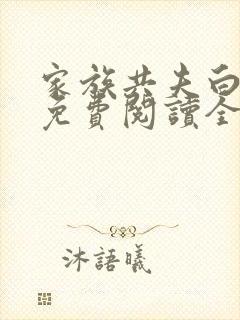 家族共夫白
免費閱讀全
沐語曦